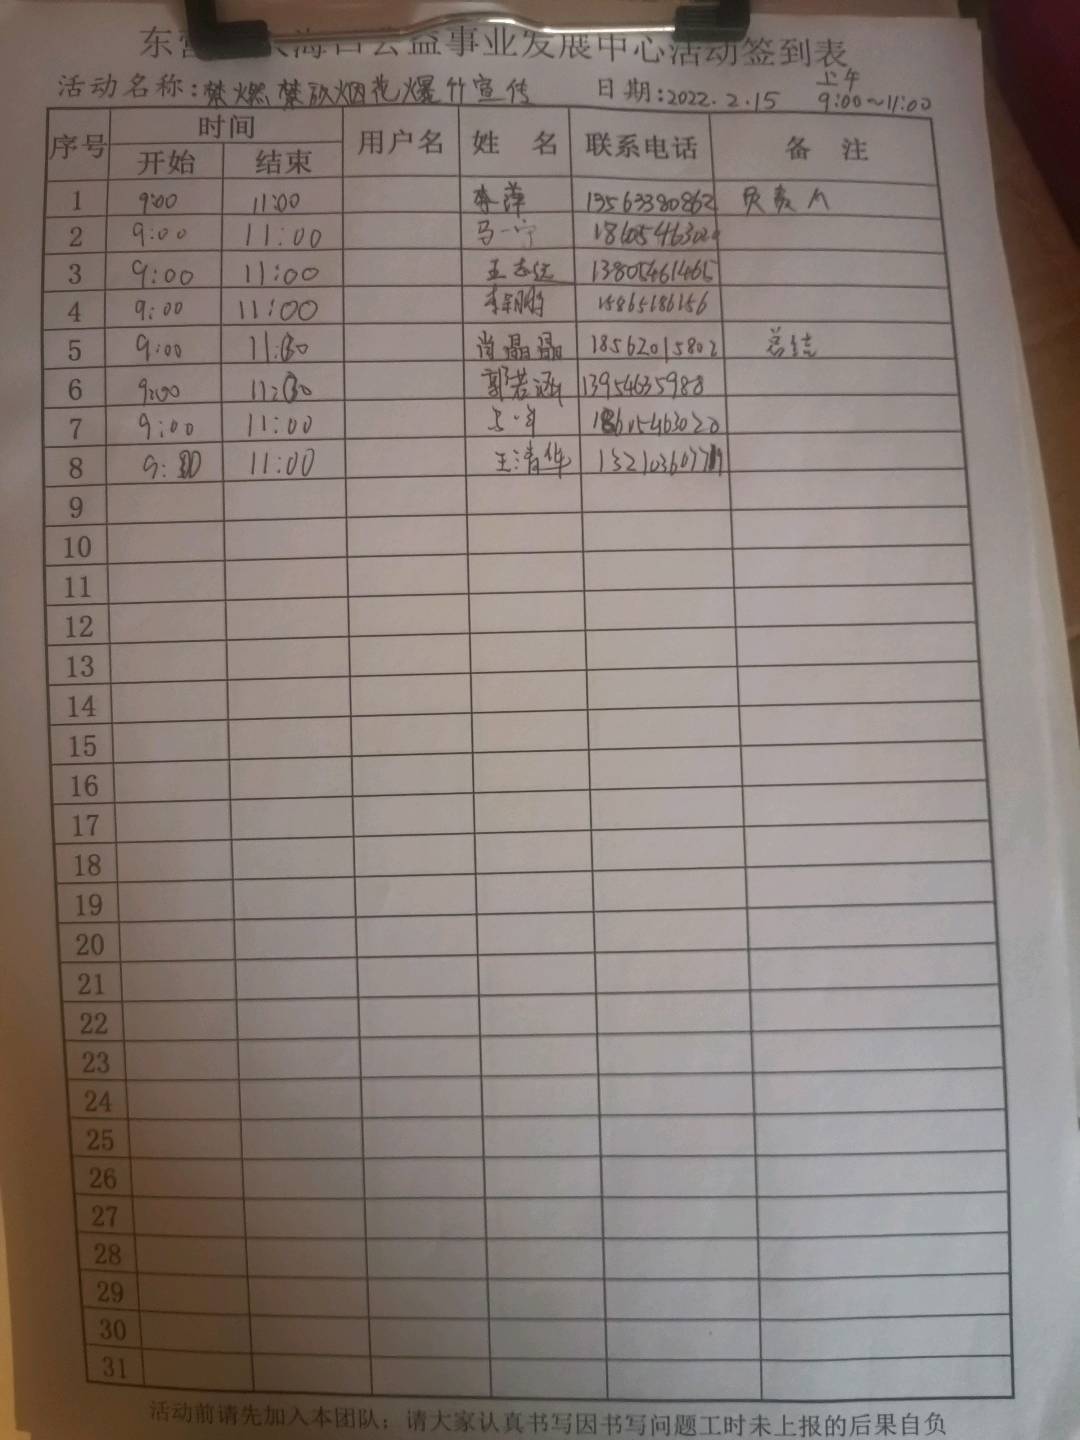 东营 海 公益事业发展中心活动签到表
活动名称:禁燃禁放烟花爆竹宣传 日期:2022.2.15 上午 9:00~11:00
序号 时间 用户名 姓 名 联系电话 备 注
开始 结束
1 9:00 11:00 李萍 13563380862 负责人
2 9:00 11:00 马一宁
3 9:00 11:00 王志远 13805461465
4 9:00 11:00 15865186156
5 9:00 尚晶晶 18562015802 总结
6 9:00 郭若涵 13954635988
7 9:00 11:00
8 11:00 王清华
9
10
11
12
13
14
15
16
17
18
19
20
21
22
23
24
25
26
27
28
29
30
31
活动前请先加入本团队:请大家认真书写因书写问题工时未上报的后果自负